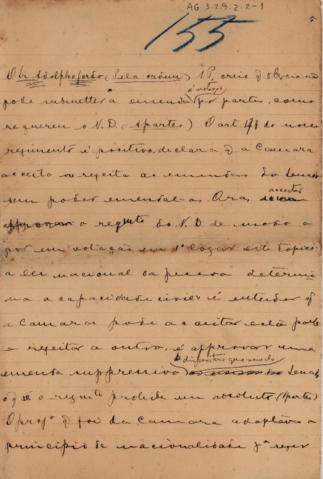 AG 3.2.9.2.2-1
155
O Sr. Adolpho Gordo (Pela ordem) Sr. P., creio q. V. Ex. não
pode submetter a emenda a votos por partes, como
requereu o N. D. (Apartes) O art. do nosso
regimento é positivo, declara q. a Camara
acceita ou rejeita as emendas do Senado
sem poder emendal-as. Ora, acceitar
approvar o reqto do N. D. de modo a
por em votação em 1º logar este topico:
a lei nacional da pessoa determi
na a capacidade civil e entender q.
a Camara pode acceitar esta parte
e rejeitar a outra, é approvar uma
emenda suppressiva do dispositivo que veio do Senado
o reqto por parte
O proj. q. foi da Camara adoptava o
principio da nacionalidade pa reger